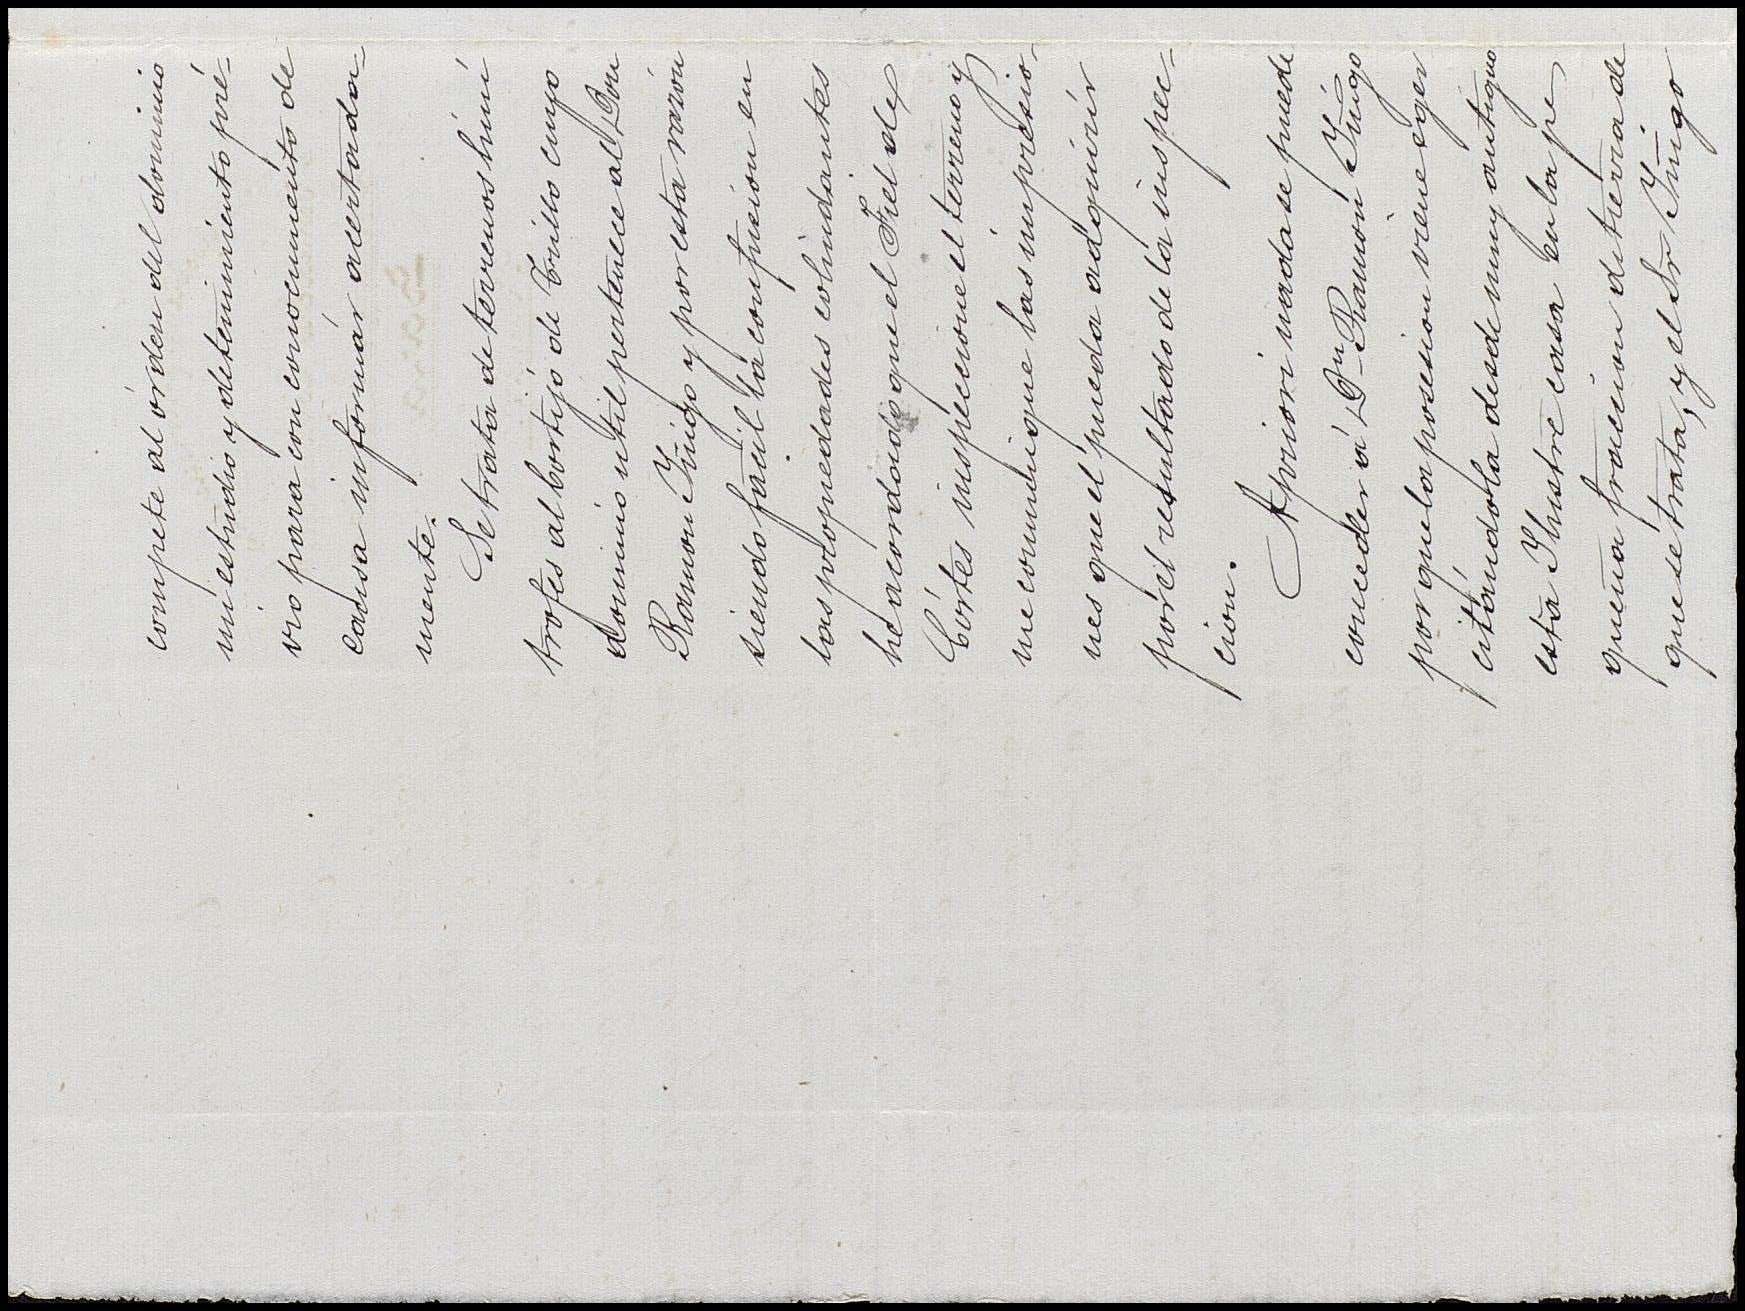 compete al órden del dominio
mi estudio y detenimiento pré-
vio para con conocimiento de
causa informár acertada-
mente.
Se trata de terrenos limí
trofes al Cortijo de Trillo cuyo
dominio util pertenece al Don
Ramon Iñigo y por esta razón
siendo fácil la confusion en
las propiedades colindantes
he acordado que el Fiel de
Córtes inspeccione el terreno y
me comunique las impresio-
nes que el pueda adquirir
por el resultado de la inspec-
cion.
A priori nada se puede
conceder á Dn Ramón Iñigo
por que la posesion viene eger
citándola desde muy antiguo
esta Ilustre casa en la pe
queña fraccion de tierra de
que se trata, y el Sr Iñigo